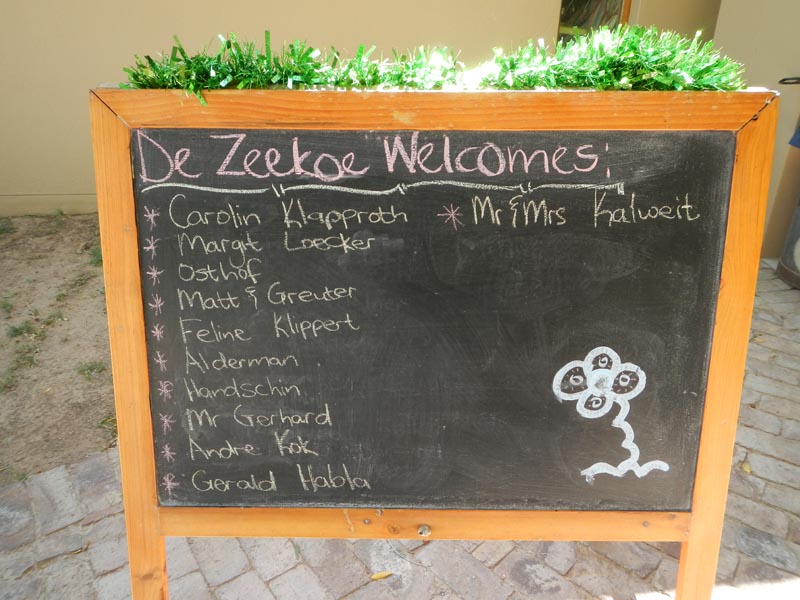 De Zeekoe Welcomes:
* Carolin Klapproth
* Margit Loecker
* Osthof
* Matt & Greuter
* Feline Klippert
* Alderman
* Handschin
* Mr Gerhard
* Andre Kok
* Gerald Habla
* Mr & Mrs Kalweit